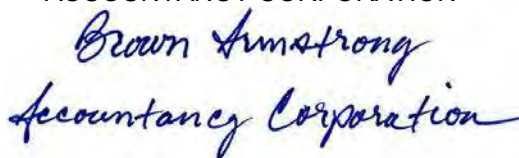 ACCOUNTANCY CORPORATION
Brown Armstrong
Accountancy Corporation